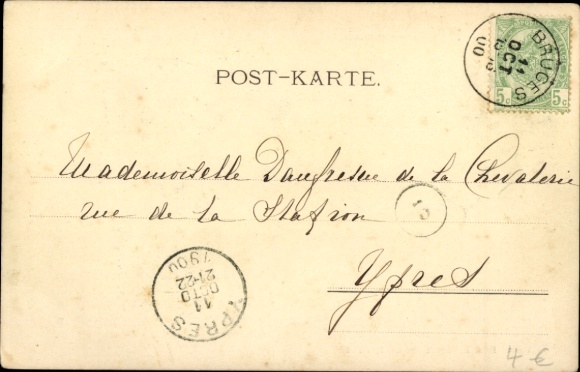 POST-KARTE.
BRUGES
11 OCT
00
5c 5c
Mademoiselle Daufresne de la Chevalerie
rue de la Station
Ypres
YPRES
11
OCTO
21-22
1900
4 €